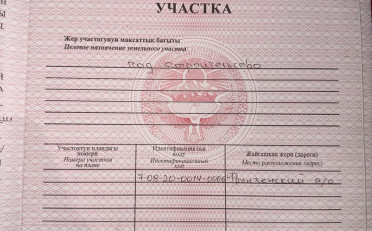 УЧАСТКА
Жер участогунун максаттык багыты
Целевое назначение земельного участка
под строительство
Участоктун пландагы номери
Номера участков на плане
Идентификациялык коду
Идентификационный код
Жайгашкан жери (дареги)
Место расположения (адрес)
7-08-20-0014-0066
а/о